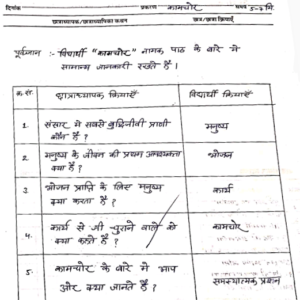 दिनांक प्रकरण कामचोर समय 5-7 मि.
छात्राध्यापक/छात्राध्यापिका कथन छात्र/छात्रा क्रियाएँ
पूर्वज्ञान :- विद्यार्थी "कामचोर" नामक पाठ के बारे में
सामान्य जानकारी रखते हैं।
क्र.सं. छात्राध्यापक क्रियाएँ विद्यार्थी क्रियाएँ
1. संसार में सबसे बुद्धिजीवी प्राणी कौन है? मनुष्य
2. मनुष्य के जीवन की प्रथम आवश्यकता क्या है? भोजन
3. भोजन प्राप्ति के लिए मनुष्य क्या करता है? कार्य
4. कार्य से जी चुराने वाले को क्या कहते हैं? कामचोर
5. कामचोर के बारे में आप और क्या जानते हैं? समस्यात्मक प्रश्न